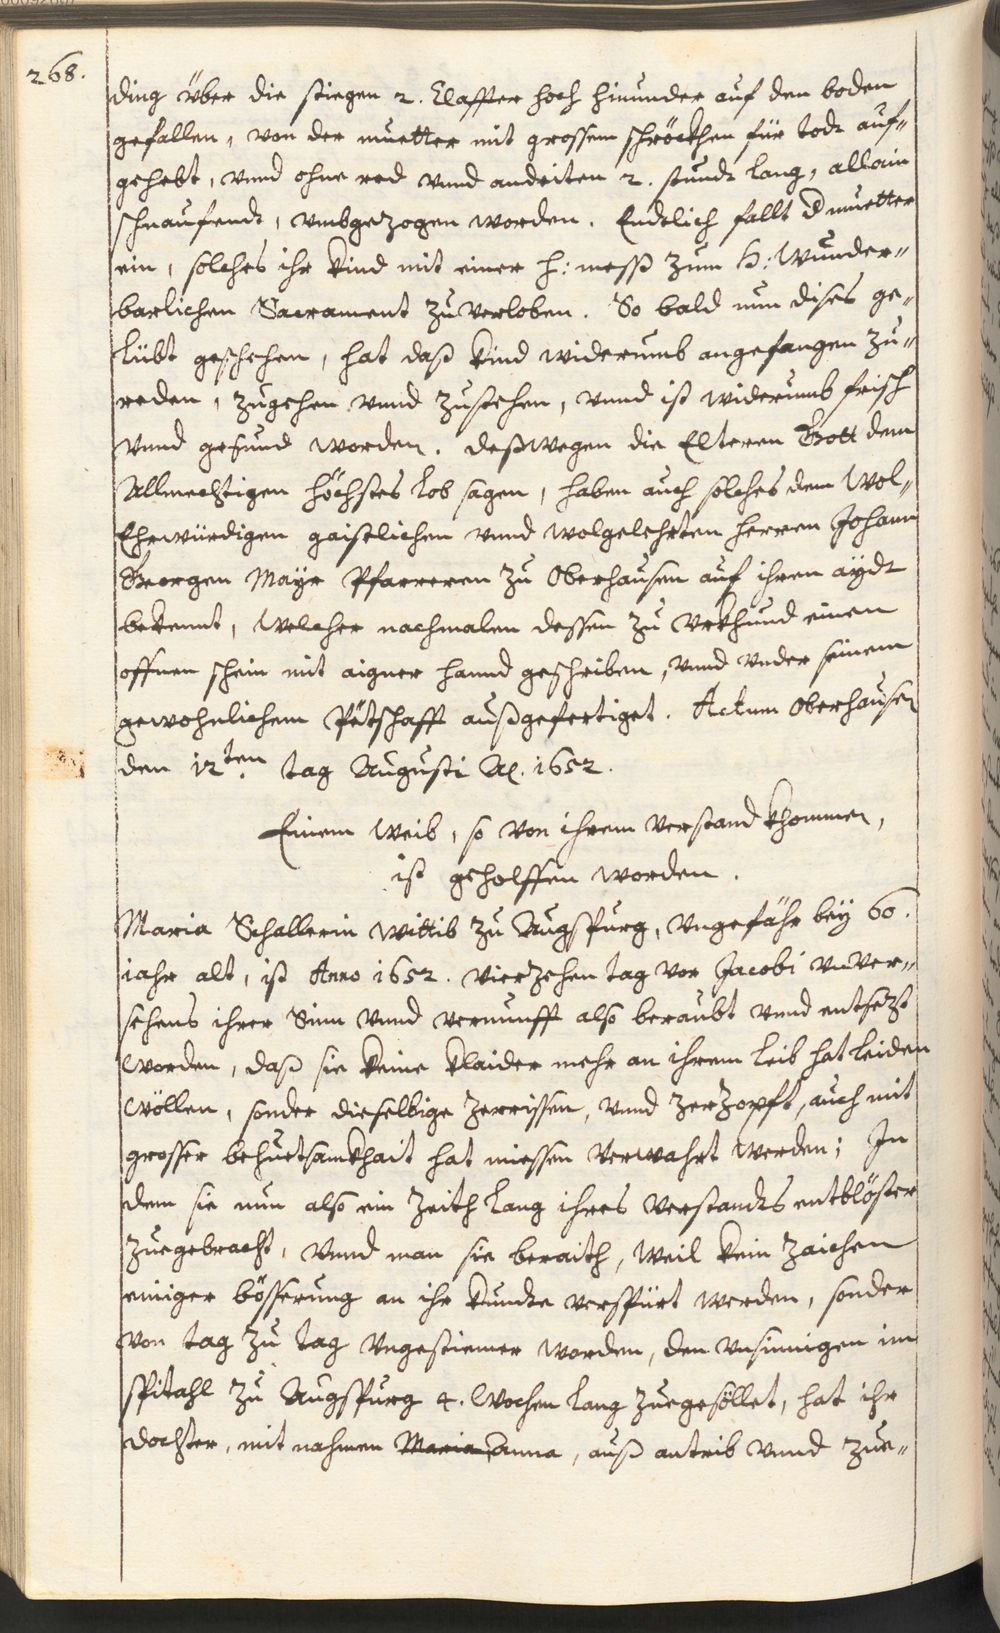 268.
ding über die stiegen 2. Claffter hoch hinunder auf den boden
gefallen, von der muetter mit grossem schröckhen für todt auf„
gehebt, vnnd ohne red vnnd andeiten 2. stundt lang, allain
schnaufendt, vmbgezogen worden. Endtlich fallt d muetter
ein, solches ihr kind mit einer h: mess zum H: Wunder„
barlichen Sacrament zu verloben. So bald nun dises ge„
lübt geschehen, hat daß kind widerumb angefangen zu„
reden, zugehen vnnd zustehen, vnnd ist widerumb frisch
vnnd gesund worden. deßwegen die Elteren Gott dem
Allmechtigen höchstes lob sagen, haben auch solches dem Wol„
Ehrwürdigen gaistlichen vnnd wolgelehrten herren Johann
Georgen Mayr Pfarreren zu Oberhausen auf ihren aydt
bekennt, Welcher nachmalen dessen zu Vrkhund einen
offnen schein mit aigner hannd geschriben, vnnd vnder seinem
gewohnlichem Petschafft außgefertiget. Actum Oberhausen
den 12ten tag Augusti Aº. 1652.
Einem Weib, so von ihrem verstand khommen,
ist geholffen worden.
Maria Schallerin Wittib zu Augspurg, vngefähr bey 60.
iahr alt, ist Anno 1652. vierzehen tag vor Jacobi vnver„
sehens ihrer Sinn vnnd vernunfft also beraubt vnnd entsezt
worden, daß sie keine klaider mehr an ihrem leib hat leiden
wöllen, sonder dieselbige zerrissen, vnnd zerzopft, auch mit
grosser behuetsamkhait hat miessen verwahrt werden; In
dem sie nun also ein zeith lang ihres verstandts entblöster
zuegebracht, vnnd man sie beraith, weil kein zaichen
einiger bösserung an ihr kundte verspürt werden, sonder
von tag zu tag vngestiemer worden, den vnsinnigen im
spitahl zu Augspurg 4. wochen lang zuegesöllet, hat ihr
dochter, mit nahmen Maria Anna, auß antrib vnnd zue„